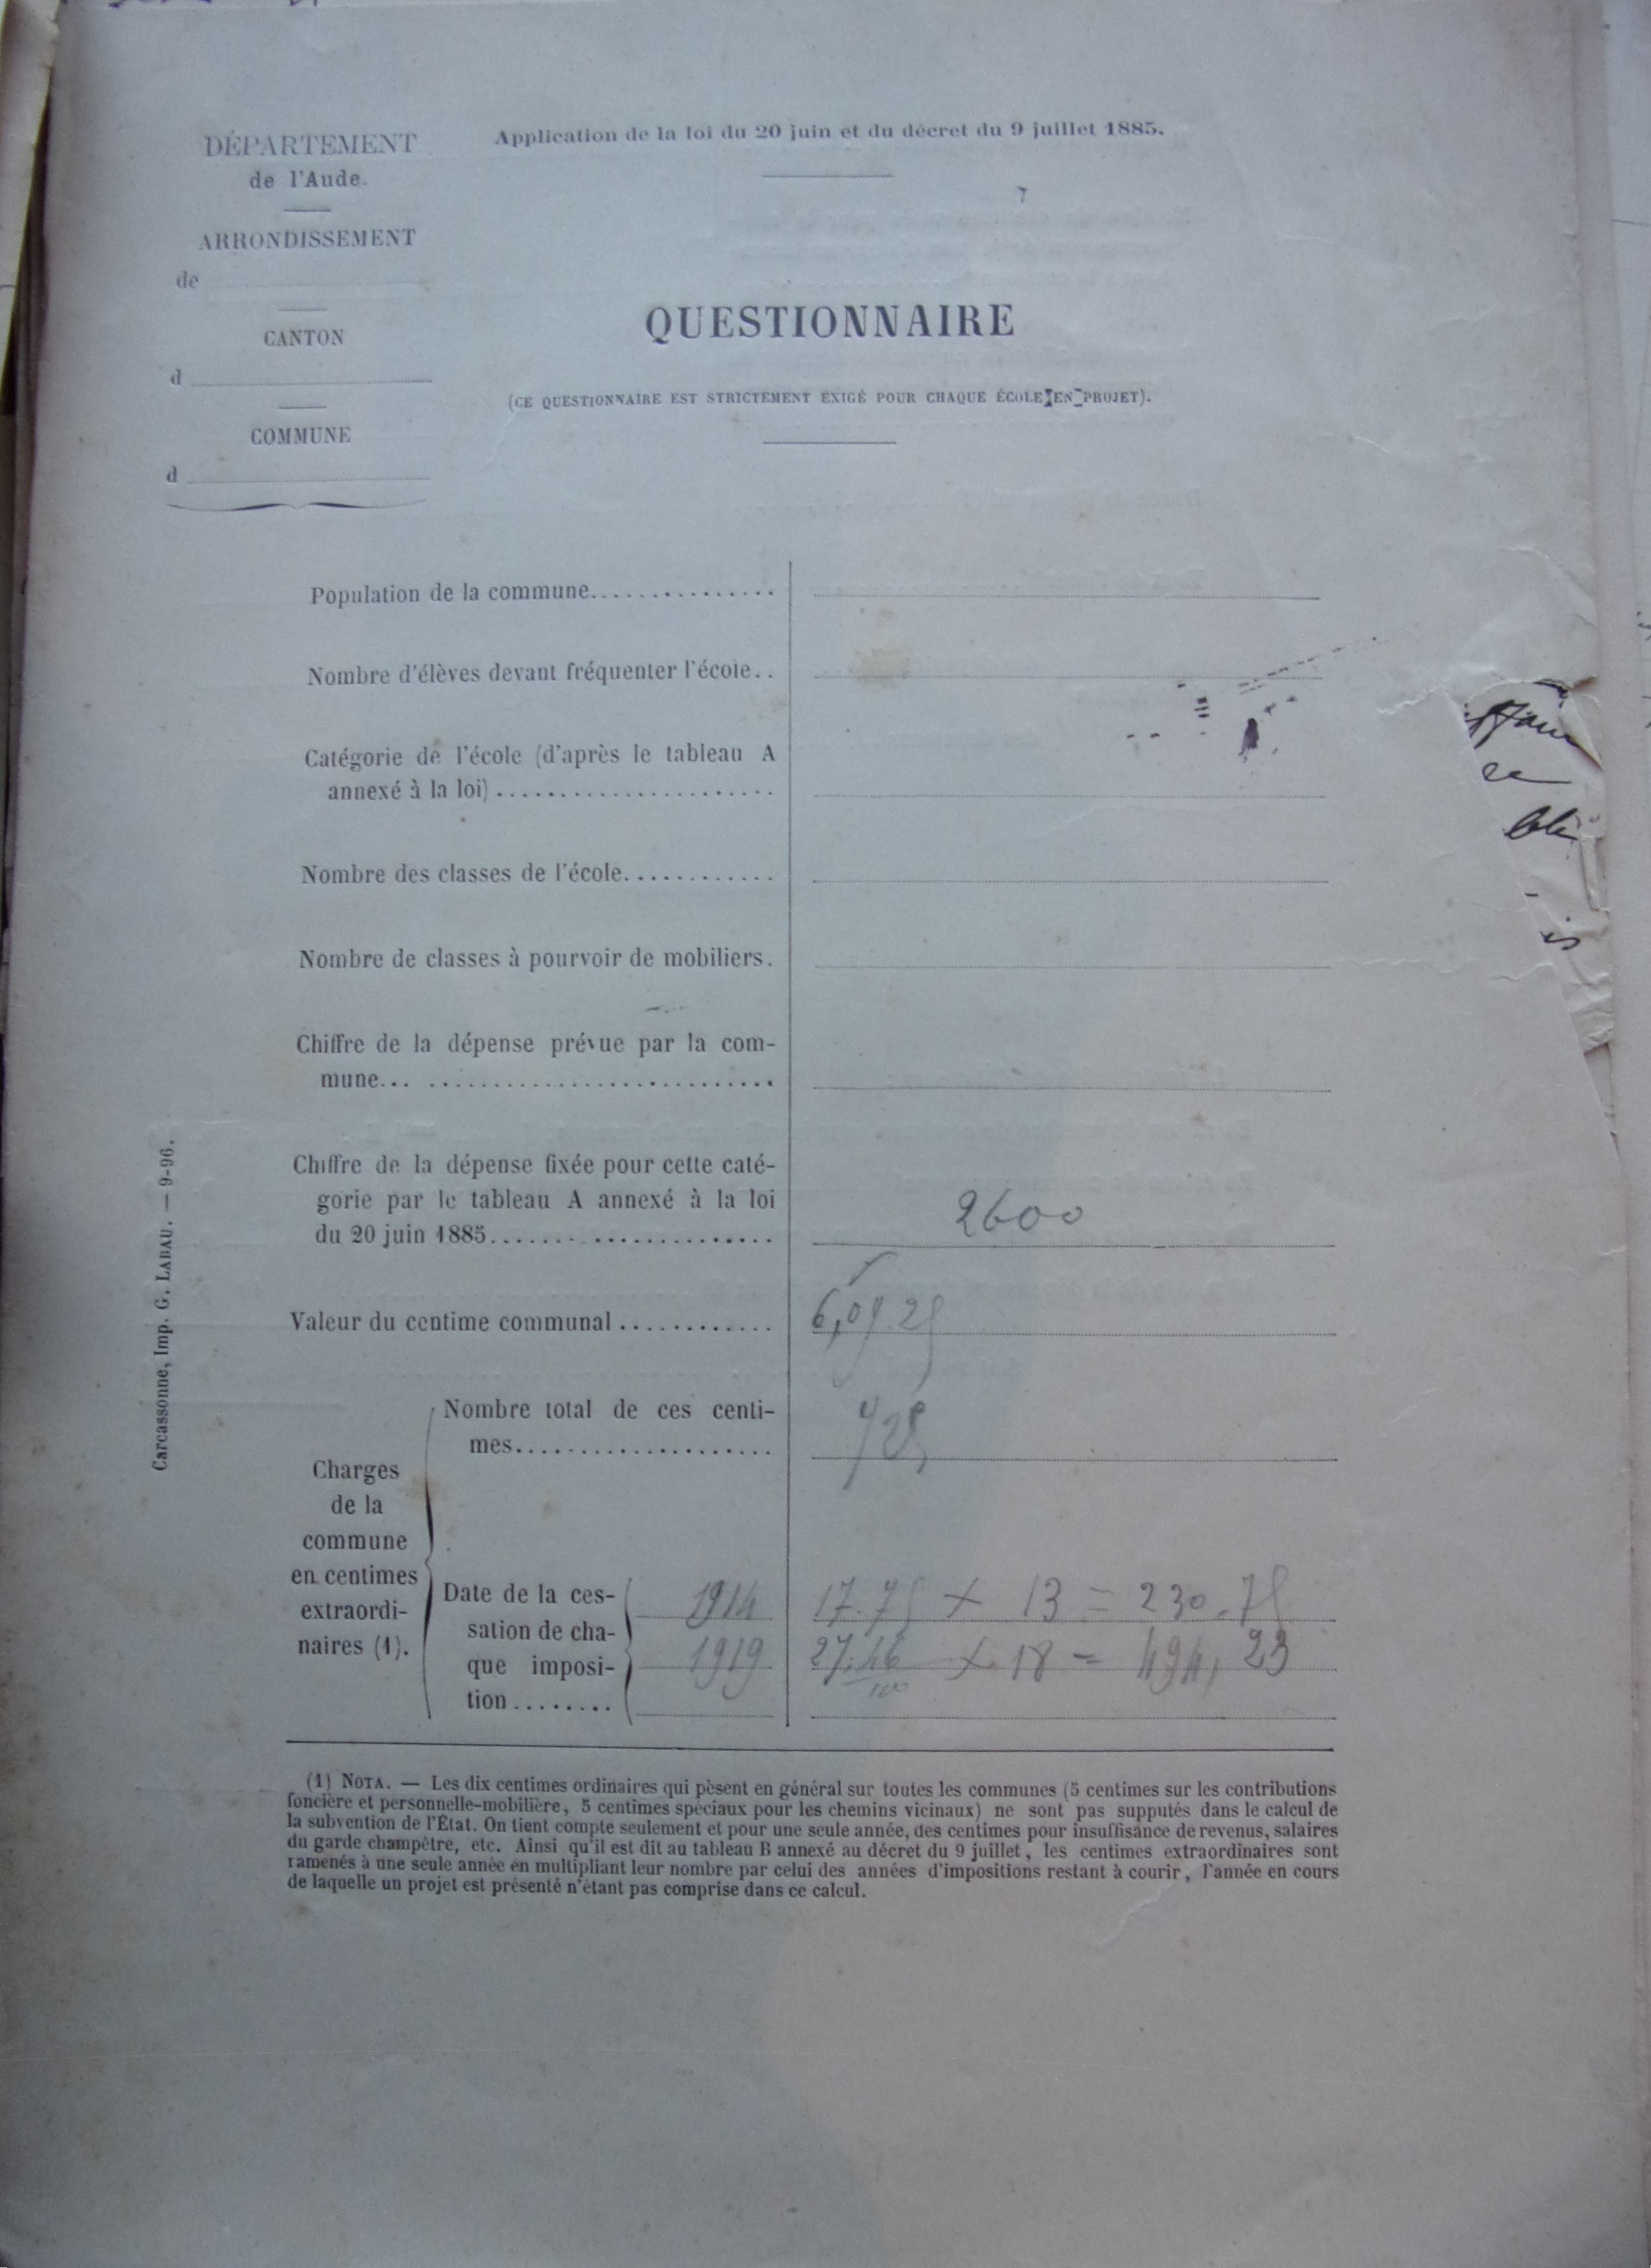 DÉPARTEMENT
de l'Aude.
ARRONDISSEMENT
de
CANTON
d
COMMUNE
d
Application de la loi du 20 juin et du décret du 9 juillet 1885.
QUESTIONNAIRE
(CE QUESTIONNAIRE EST STRICTEMENT EXIGÉ POUR CHAQUE ÉCOLE EN PROJET).
Population de la commune...............
Nombre d'élèves devant fréquenter l'école..
Catégorie de l'école (d'après le tableau A
annexé à la loi)......................
Nombre des classes de l'école............
Nombre de classes à pourvoir de mobiliers.
Chiffre de la dépense prévue par la com-
mune... ...........................
Chiffre de la dépense fixée pour cette caté-
gorie par le tableau A annexé à la loi
du 20 juin 1885...................... 2600
Valeur du centime communal ............ 6,05.25
Charges
de la
commune
en centimes
extraordi-
naires (1).
Nombre total de ces centi-
mes.................... 725
Date de la ces-
sation de cha-
que imposi-
tion ........
1914 17.75 × 13 = 230.75
1919 27.46/100 × 18 = 494,23
(1) NOTA. — Les dix centimes ordinaires qui pèsent en général sur toutes les communes (5 centimes sur les contributions
foncière et personnelle-mobilière, 5 centimes spéciaux pour les chemins vicinaux) ne sont pas supputés dans le calcul de
la subvention de l'État. On tient compte seulement et pour une seule année, des centimes pour insuffisance de revenus, salaires
du garde champêtre, etc. Ainsi qu'il est dit au tableau B annexé au décret du 9 juillet, les centimes extraordinaires sont
ramenés à une seule année en multipliant leur nombre par celui des années d'impositions restant à courir, l'année en cours
de laquelle un projet est présenté n'étant pas comprise dans ce calcul.
Carcassonne, Imp. G. LABAU. — 9-96.